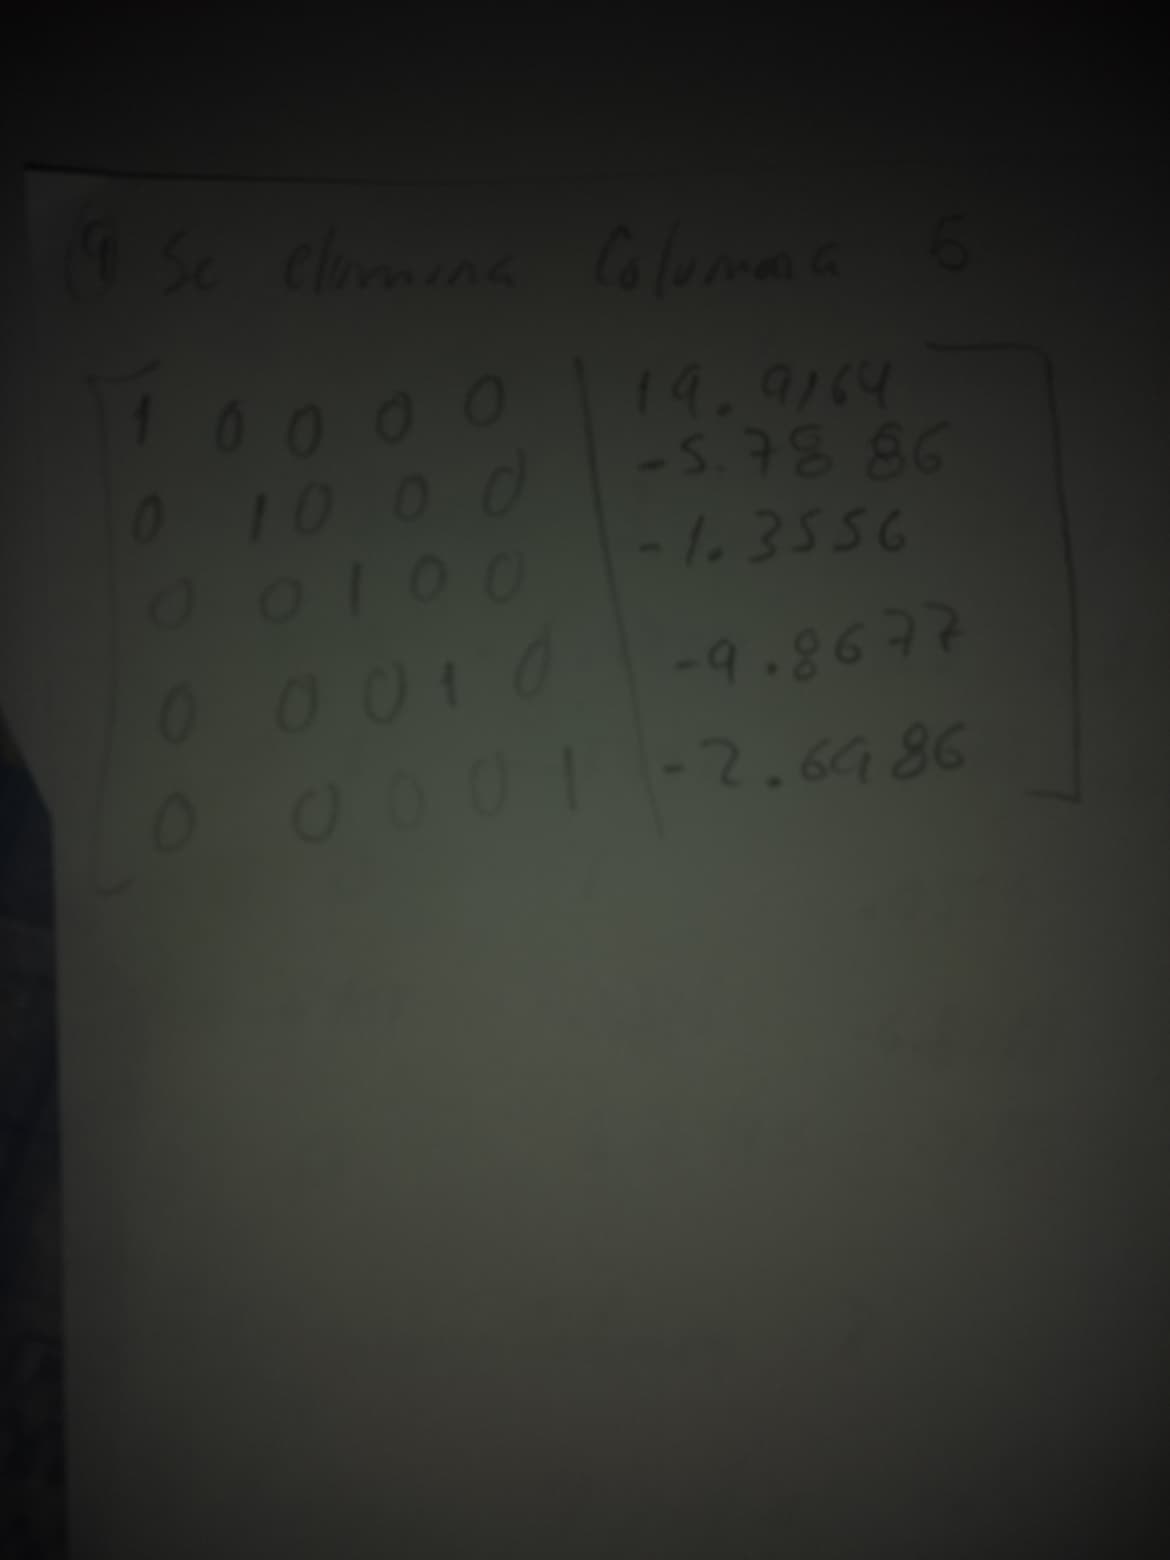 9 Se elimina Columna 5
1 0 0 0 0 | 19.9164
0 1 0 0 0 | -5.7886
0 0 1 0 0 | -1.3556
0 0 0 1 0 | -9.8677
0 0 0 0 1 | -2.6986